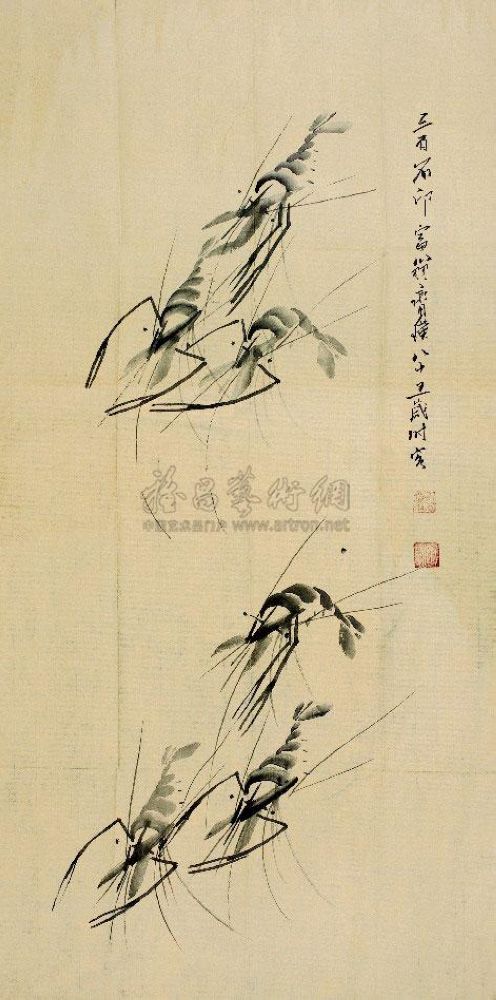 三百石印富翁齊璜八十五歲時客
雅昌藝術網
www.artron.net